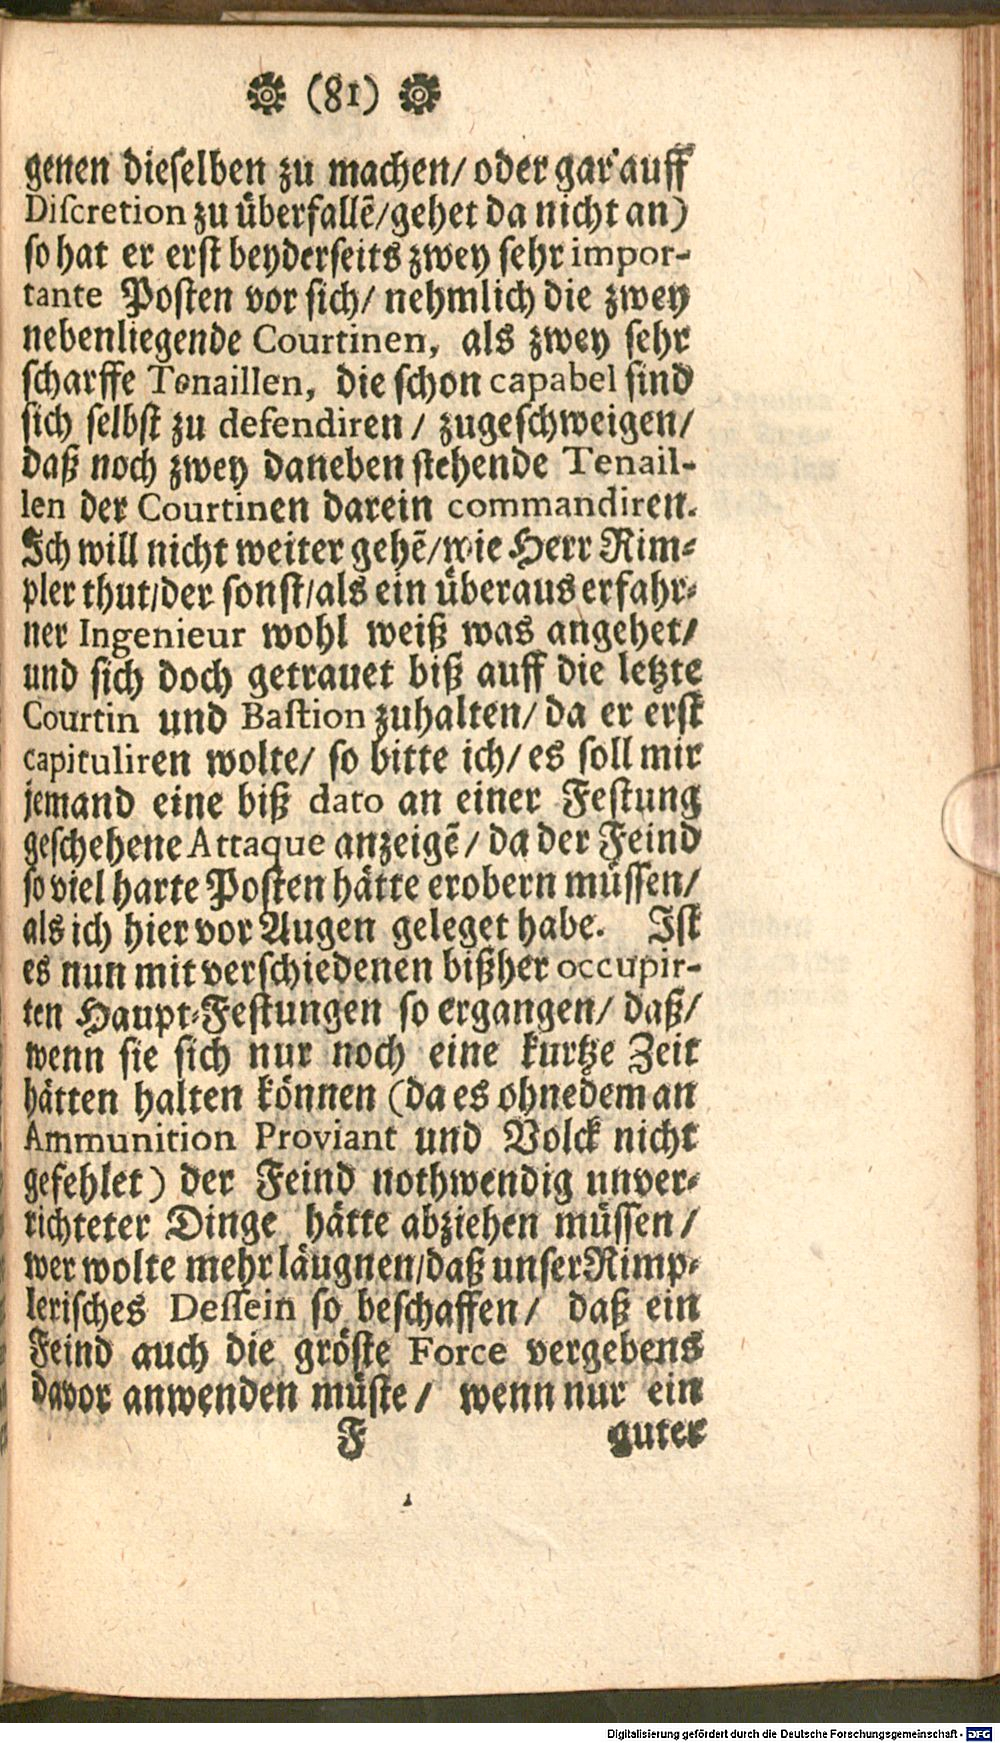 (81)
genen dieselben zu machen/ oder gar auff
Discretion zu überfallē/gehet da nicht an)
so hat er erst beyderseits zwey sehr impor-
tante Posten vor sich/ nehmlich die zwey
nebenliegende Courtinen, als zwey sehr
scharffe Tenaillen, die schon capabel sind
sich selbst zu defendiren/ zugeschweigen/
daß noch zwey daneben stehende Tenail-
len der Courtinen darein commandiren.
Ich will nicht weiter gehē/wie Herr Rim-
pler thut/der sonst/als ein überaus erfahr-
ner Ingenieur wohl weiß was angehet/
und sich doch getrauet biß auff die letzte
Courtin und Bastion zuhalten/ da er erst
capituliren wolte/ so bitte ich/ es soll mir
jemand eine biß dato an einer Festung
geschehene Attaque anzeigē/ da der Feind
so viel harte Posten hätte erobern müssen/
als ich hier vor Augen geleget habe. Ist
es nun mit verschiedenen bißher occupir-
ten Haupt-Festungen so ergangen/ daß/
wenn sie sich nur noch eine kurtze Zeit
hätten halten können (da es ohnedem an
Ammunition Proviant und Volck nicht
gefehlet) der Feind nothwendig unver-
richteter Dinge hätte abziehen müssen/
wer wolte mehr läugnen/daß unser Rimp-
lerisches Dessein so beschaffen/ daß ein
Feind auch die gröste Force vergebens
davor anwenden müste/ wenn nur ein
F guter
Digitalisierung gefördert durch die Deutsche Forschungsgemeinschaft - DFG